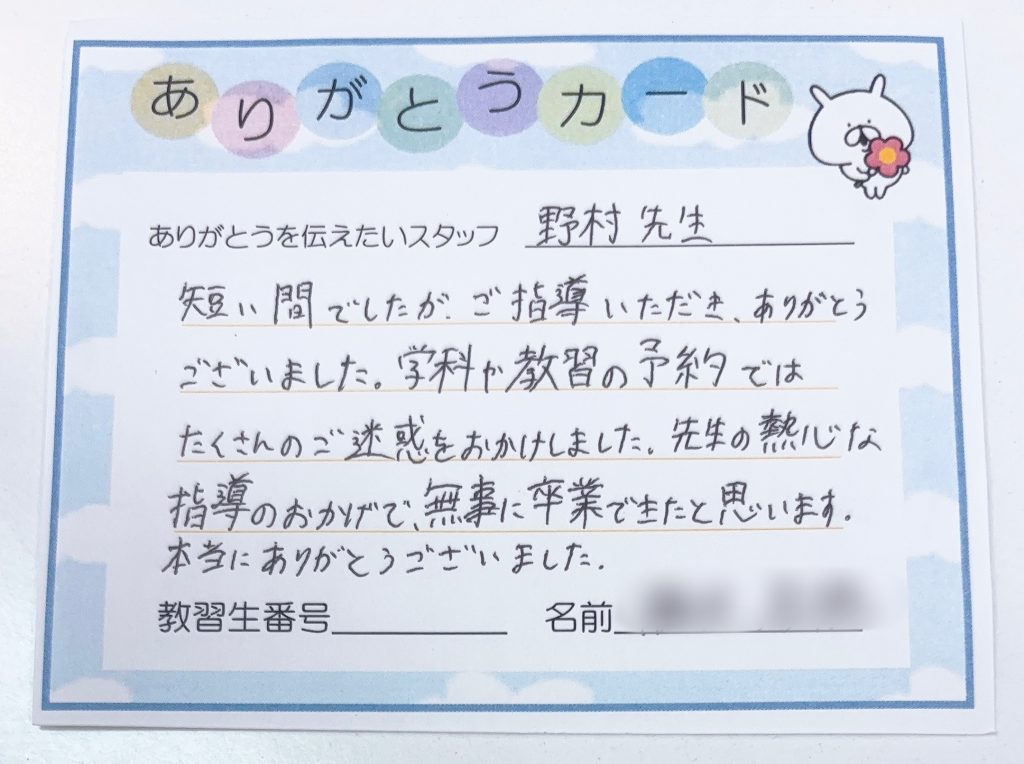 ありがとうカード
ありがとうを伝えたいスタッフ 野村先生
短い間でしたが、ご指導いただき、ありがとう
ございました。学科や教習の予約では
たくさんのご迷惑をおかけしました。先生の熱心な
指導のおかげで、無事に卒業できたと思います。
本当にありがとうございました。
教習生番号 名前